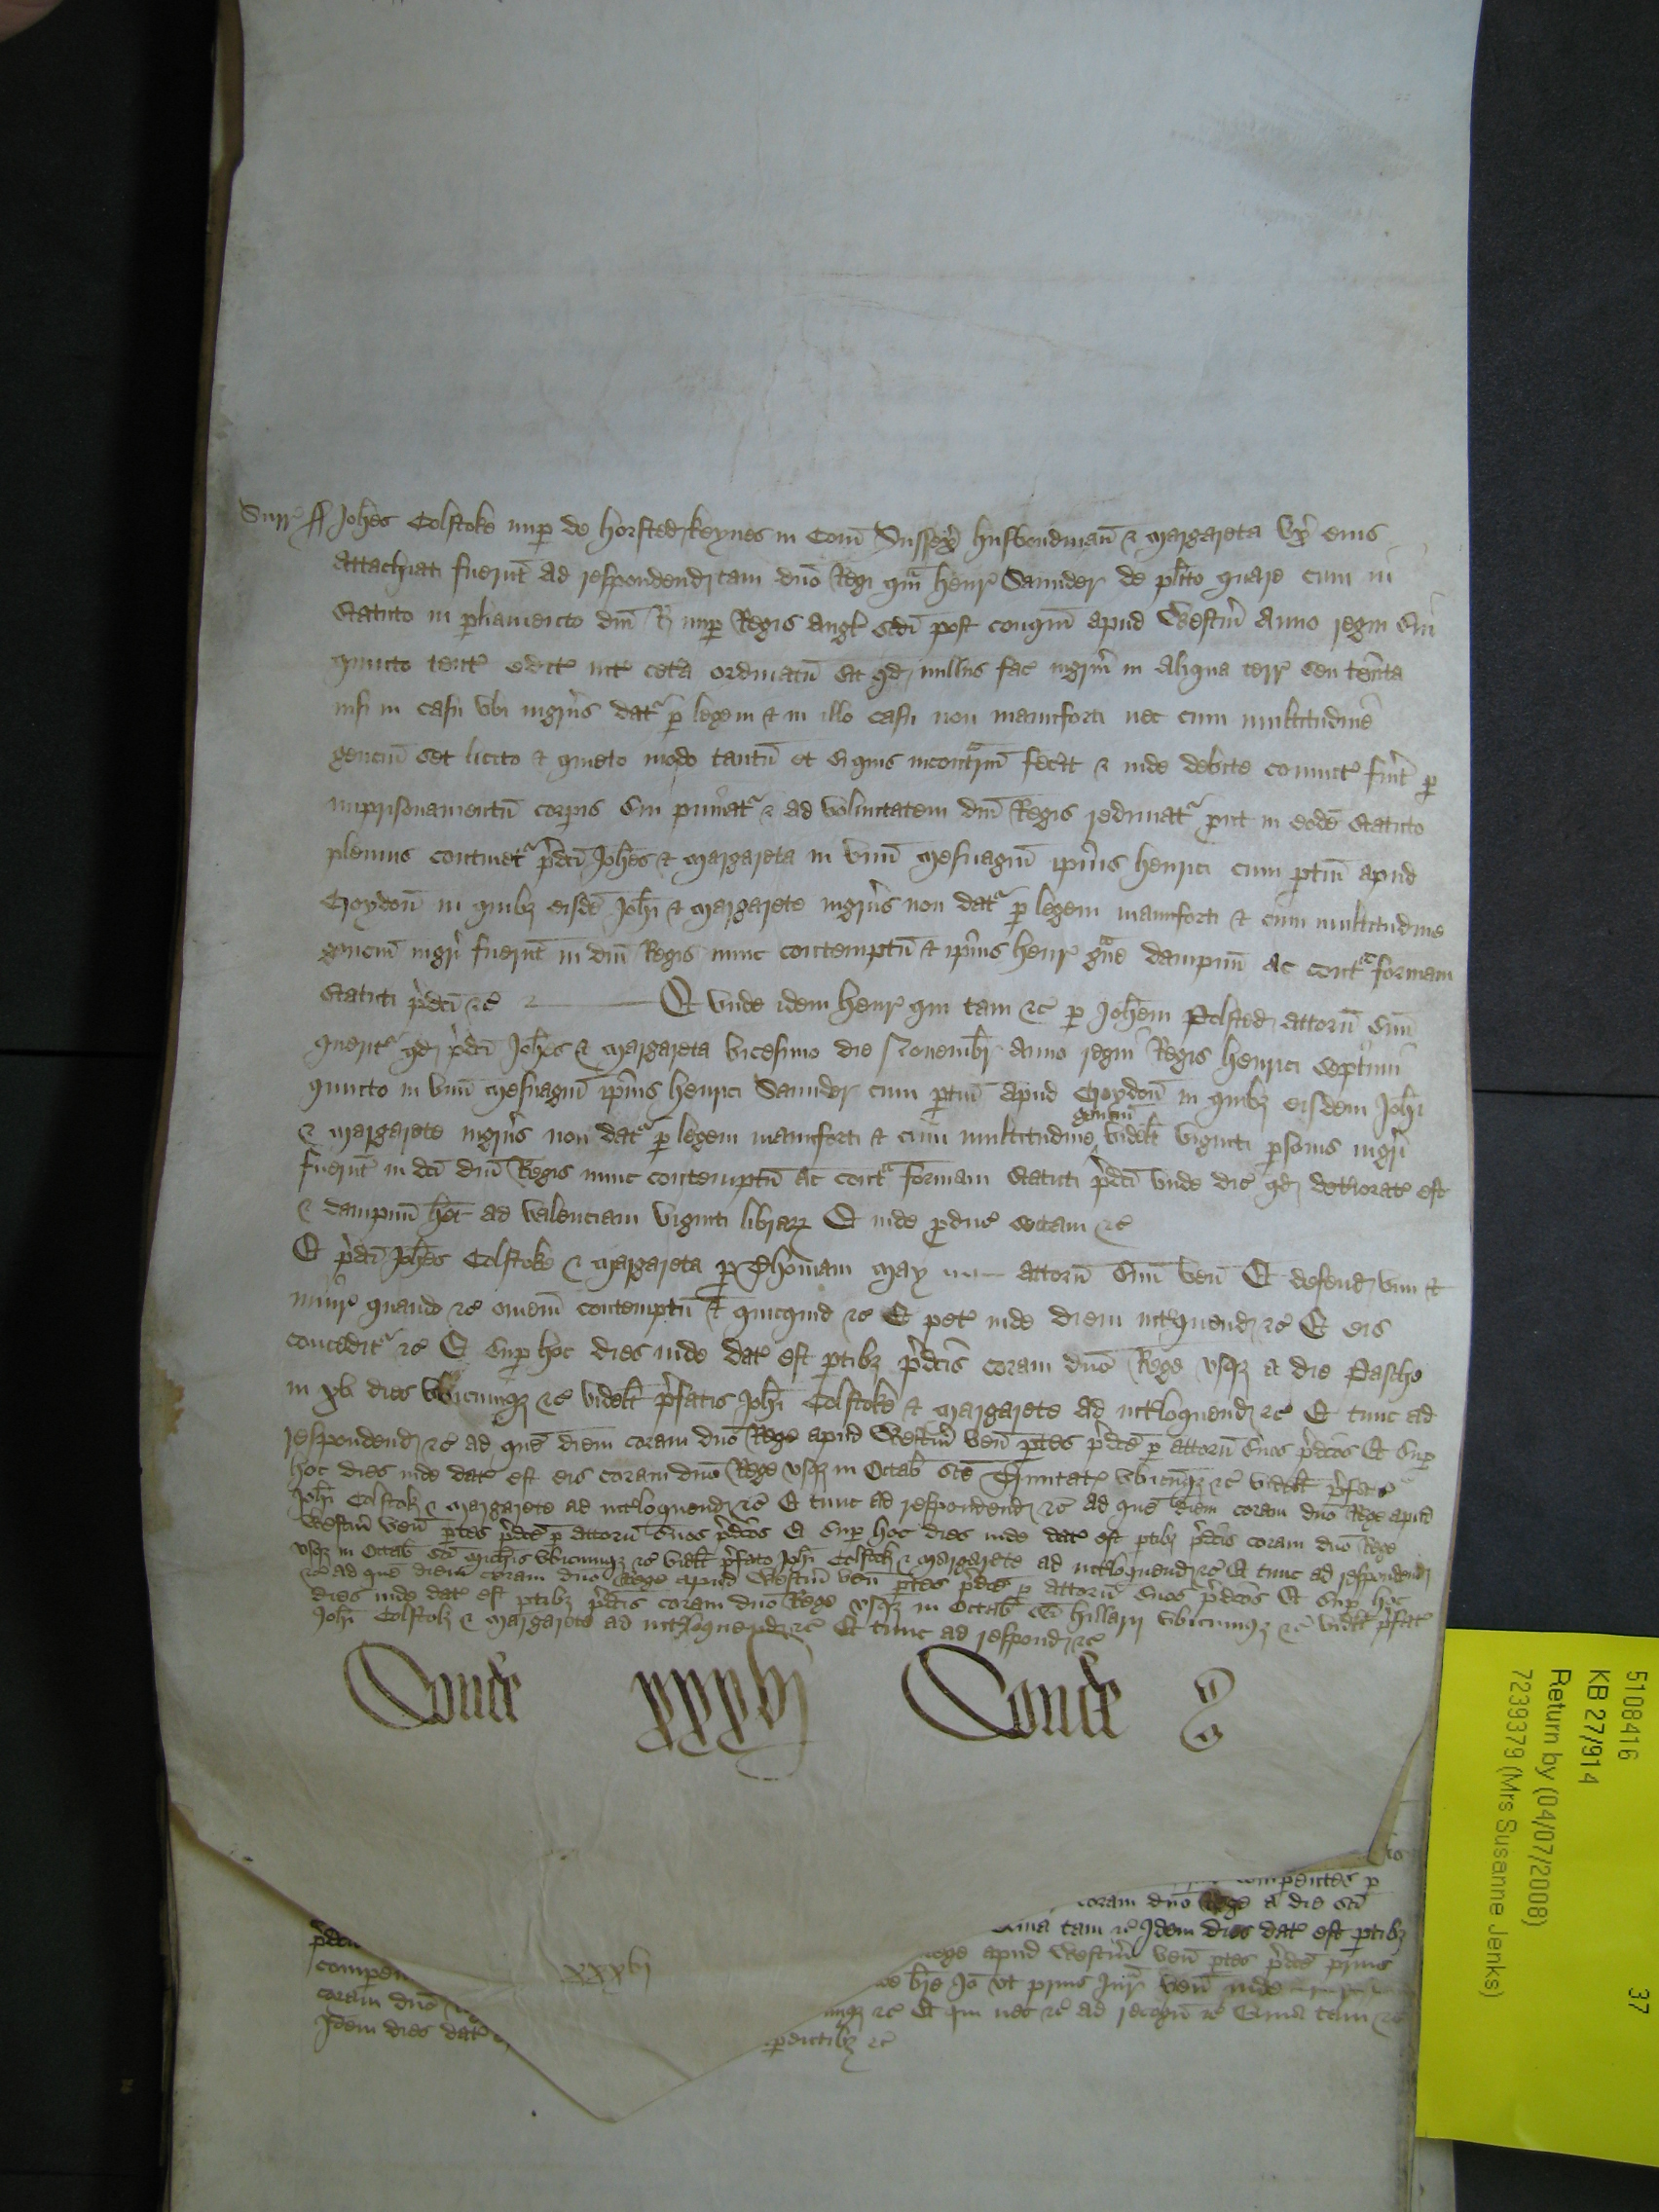 Surr̃ ſſ Joh̃es Colstoke nup̱ de horsted keynes in Com̃ Sussex̃ husbondman̄ & Margareta vx̃ eius
attachiati fuerunt̃ ad respondend̃ tam dn̄o Regi qm̃ henr̃ Saunder de pl̃ito quare cum in
statuto in p̱liamento dn̄i R̃ nup̱ Regis Angl̃ scd̃i post conqm̃ apud Westm̃ Anno regni sui
quinto tent̃ edit̃ int̃ cet̃a ordinatū sit qd̃ nullus fac̃ ingrm̃ in aliqua terr̃ seu ten̄ta
nisi in casu vbi ingrũs dat̃ p̱ legem & in illo casu non manuforti nec cum multitudine
genciū set licito & quieto modo tantū et siquis incontrm̃ fec̃it & inde debite conuict̃ fũit p̱
imprisonamentū corp̱is sui puniat̃ & ad voluntatem dn̄i Regis redimat̃ put in eodē statuto
plenius continet̃ p̃dc̃i Joh̃es & Margareta in vnū Mesuagiū ip̃ius henrici cum p̱tin̄ apud
Croydoñ in quibȝ eisdē Joh̃i & Margarete ingrũs non dat̃ p̱ legem manuforti & cum multitudine
genciū ingr̃i fuerunt̃ in dn̄i Regis nunc contemptū & ip̃ius henr̃ gr̃ue dampnū ac cont̃ formam
statuti p̃dc̃i &c̃ & Et vnde idem henr̃ qui tam &c̃ p̱ Joh̃em Polsted attorñ suū
querit̃ qd̃ p̃dc̃i Joh̃es & Margareta vicesimo die Nouembr̃ Anno regni Regis henrici septimi
quinto in vnū Mesuagiū ip̃ius henrici Saunder cum p̱tin̄ apud Croydoñ in quibȝ eisdem Joh̃i
& Margarete ingrũs non dat̃ p̱ legem manuforti & cum multitudine genciū videlt̃ viginti p̱sonis ingr̃i
fuerunt̃ in dc̃i dn̄i Regis nunc contemptū ac cont̃ formam statuti p̃dc̃i vnde dic̃ qd̃ det̃iorat̃ est
& dampnū h̃et ad valenciam viginti librar̃ Et inde p̱duc̃ sectam &c̃
Et p̃dc̃i Joh̃es Colstoke & Margareta p̱ Thomam May attorñ suū veñ Et defend̃ vim &
iniur̃ quando &c̃ omēm contemptū & quicquid &c̃ Et pet̃ inde diem int̃loquend̃ &c̃ Et eis
concedit̃ &c̃ Et sup̱ hoc dies inde dat̃ est p̱tibȝ p̃dc̃is coram dn̄o Rege vsqȝ a die Pasche
in xv dies vbicumqȝ &c̃ videlt̃ p̃fatis Joh̃i Colstoke & Margarete ad int̃loquend̃ &c̃ Et tunc ad
respondend̃ &c̃ ad quē diem coram dn̄o Rege apud Westm̃ veñ p̱tes p̃dc̃e p̱ attorñ suos p̃dc̃os Et sup̱
hoc dies inde dat̃ est eis coram dn̄o Rege vsqȝ in Octab̃ sc̃e Trinitat̃ vbicumqȝ &c̃ videlt̃ p̃fat̃
Joh̃i Colstok & Margarete ad int̃loquend̃ &c̃ Et tunc ad respondend̃ &c̃ ad quē diem coram dn̄o Rege apud
Westm̃ veñ p̱tes p̃dc̃e p̱ attorñ suos p̃dc̃os Et sup̱ hoc dies inde dat̃ est p̱tibȝ p̃dc̃is coram dn̄o Rege
vsqȝ in Octab̃ sc̃i Mich̃is vbicumqȝ &c̃ videlt̃ p̃fato Joh̃i Colstok & Margarete ad int̃loquend̃ &c̃ Et tunc ad respondend̃
&c̃ ad quē diem coram dn̄o Rege apud Westm̃ veñ p̱tes p̃dc̃e p̱ attorñ suos p̃dc̃os Et sup̱ hoc
dies inde dat̃ est p̱tibȝ p̃dc̃is coram dn̄o Rege vsqȝ in Octab̃ sc̃i hillarij vbicumqȝ &c̃ videlt̃ p̃fat̃
Joh̃i Colstok & Margarete ad int̃loquend̃ &c̃ Et tunc ad respond̃ &c̃
xxxvj
coram dn̄o Rege a die sc̃i
tam &c̃ Idem dies dat̃ est p̱tibȝ
p̃dc̃
Rege apud Westm̃ veñ p̱tes p̃dc̃e prius
compen
br̃e Jõ vt prius Jur̃ veñ inde
coram dn̄o
&c̃ Et qui nec &c̃ ad recogñ &c̃ Quia tam &c̃
Idem dies dat̃
xxxvj
5108416 37
KB 27/914
Return by (04/07/2008)
7239379 (Mrs Susanne Jenks)